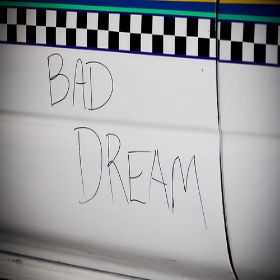 BAD
DREAM